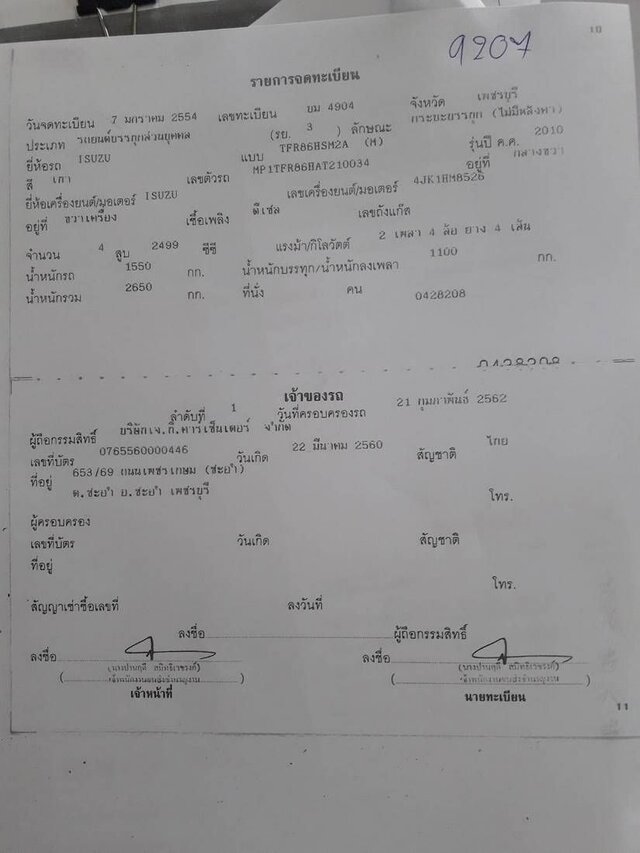 10
9207
รายการจดทะเบียน
วันจดทะเบียน 7 มกราคม 2554 เลขทะเบียน ยม 4904 จังหวัด เพชรบุรี
ประเภท รถยนต์บรรทุกส่วนบุคคล (รย. 3 ) ลักษณะ กระบะบรรทุก (ไม่มีหลังคา)
ยี่ห้อรถ ISUZU แบบ TFR86HSM2A (M) รุ่นปี ค.ศ. 2010
สี เทา เลขตัวรถ MP1TFR86HAT210034 อยู่ที่ กลางขวา
ยี่ห้อเครื่องยนต์/มอเตอร์ ISUZU เลขเครื่องยนต์/มอเตอร์ 4JK1HM8526
อยู่ที่ ขวาเครื่อง เชื้อเพลิง ดีเซล เลขถังแก๊ส
จำนวน 4 สูบ 2499 ซีซี แรงม้า/กิโลวัตต์ 2 เพลา 4 ล้อ ยาง 4 เส้น
น้ำหนักรถ 1550 กก. น้ำหนักบรรทุก/น้ำหนักลงเพลา 1100 กก.
น้ำหนักรวม 2650 กก. ที่นั่ง คน 0428208
0428208
เจ้าของรถ
ลำดับที่ 1 วันที่ครอบครองรถ 21 กุมภาพันธ์ 2562
ผู้ถือกรรมสิทธิ์ บริษัทเจ.ที.คาร์เซ็นเตอร์ จำกัด
เลขที่บัตร 0765560000446 วันเกิด 22 มีนาคม 2560 สัญชาติ ไทย
ที่อยู่ 653/69 ถนนเพชรเกษม (ชะอำ)
ต.ชะอำ อ.ชะอำ เพชรบุรี โทร.
ผู้ครอบครอง
เลขที่บัตร วันเกิด สัญชาติ
ที่อยู่
โทร.
สัญญาเช่าซื้อเลขที่ ลงวันที่
ลงชื่อ ผู้ถือกรรมสิทธิ์
ลงชื่อ ลงชื่อ
เจ้าพนักงานขนส่งชำนาญงาน เจ้าพนักงานขนส่งชำนาญงาน
เจ้าหน้าที่ นายทะเบียน
11